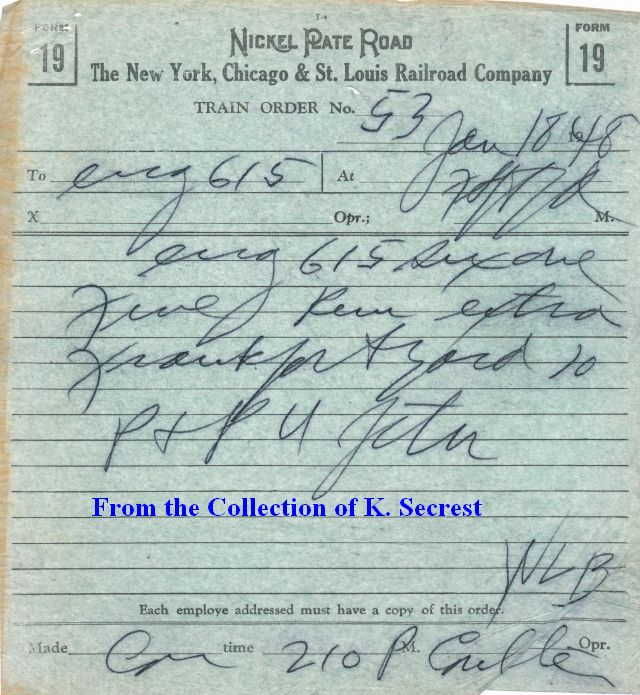 FORM 19
NICKEL PLATE ROAD
FORM 19
The New York, Chicago & St. Louis Railroad Company
TRAIN ORDER No. 53
Jan 18 1948
To eng 615 At
X Opr.; M.
eng 615 six one
five Run extra
Frankfort yard to
P & P U Jctn
From the Collection of K. Secrest
WLB
Each employe addressed must have a copy of this order.
Made Com time 210 P M. Opr.